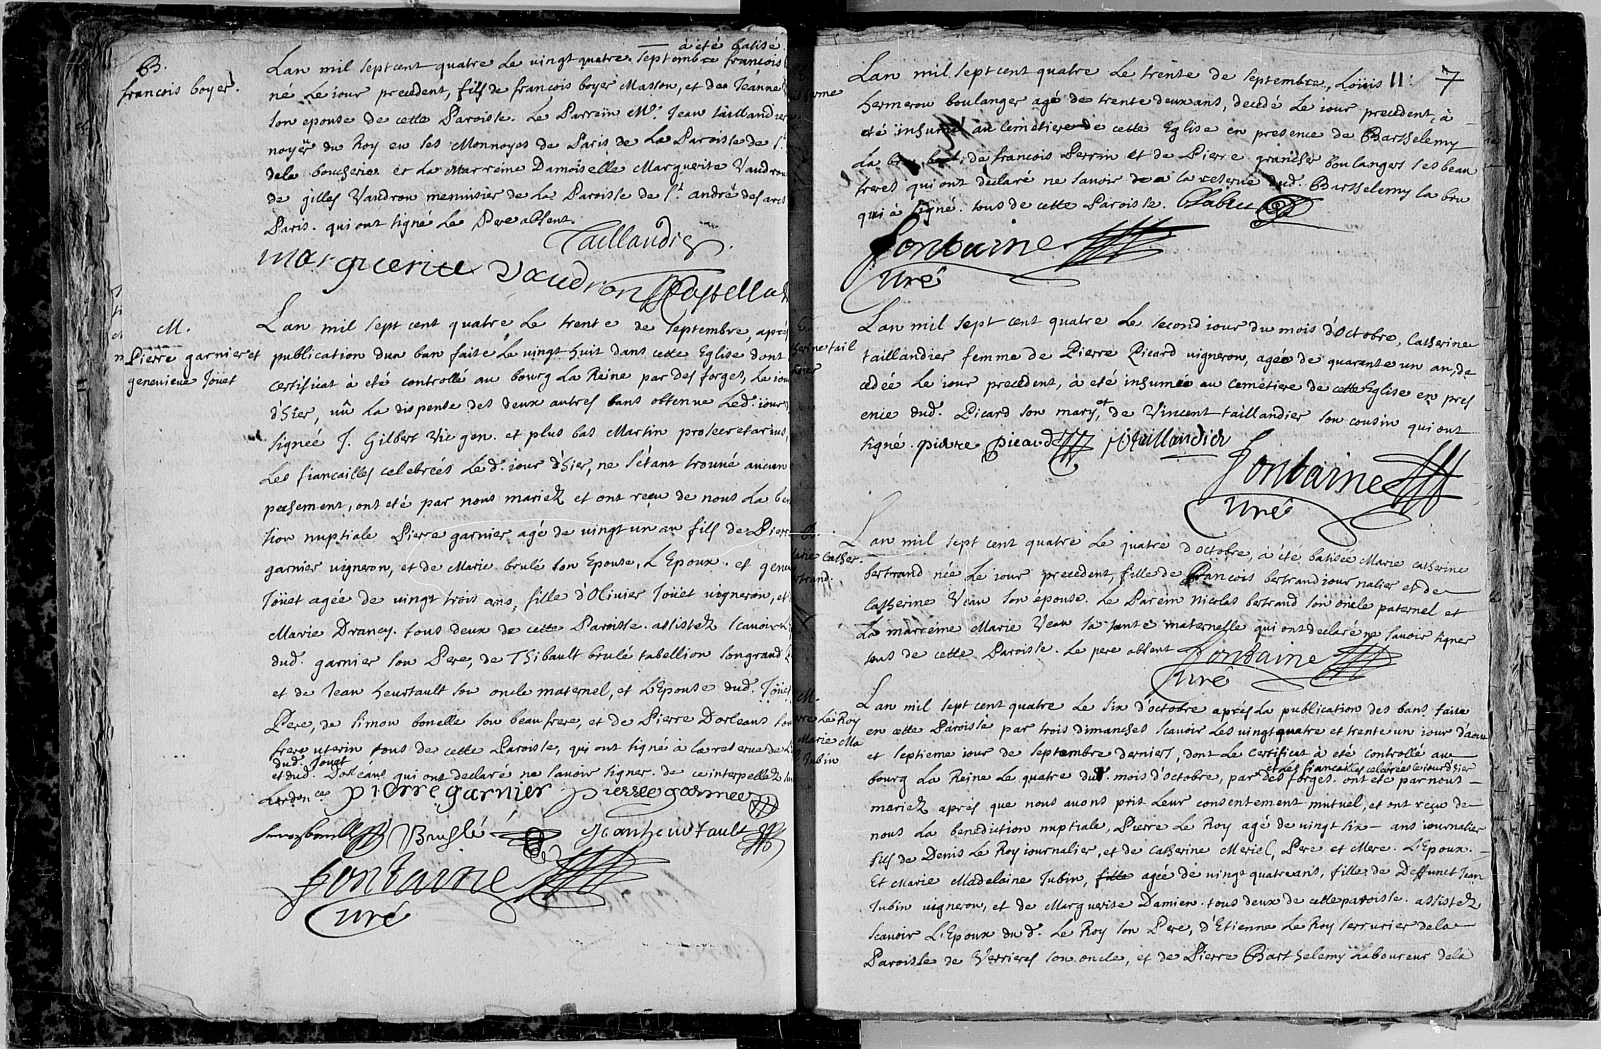 B.
francois boyer.
à eté batisé
Lan mil sept cent quatre le vingt quatre septembre francois
né le iour precedent, fils de francois boyer Masson, et de Jeanne
son epouse de cette Paroisse. Le Parrein Mr. Jean taillandier
du Roy en ses Monnoyes de Paris de La Paroisse de St.
dela boucherie et La Marreine Damoiselle Marguerite Vaudron
de gilles Vaudron menuisier de La Paroisse de St. andré des arcs
Paris. qui ont signé Le Pere absent.
Taillandier
marguerite vaudron
M.
Pierre garnier et
genevieue Joüet
Lan mil sept cent quatre Le trente de septembre, apres
publication dun ban faite Le vingt huit dans cette Eglise dont
certificat à eté controllé au bourg La Reine par des forges, Le iour
d'hier, vû La dispense des deux autres bans obtenue Led. iour
signée J. Gilbert Vic gen. et plus bas Martin prosecretarius,
Les fiancailles celebrées Led. iour d'hier, ne s'étant trouué aucun
peschement, ont eté par nous mariez et ont reçu de nous La be
tion nuptiale Pierre garnier agé de vingt un an fils de Pierre
garnier vigneron, et de Marie brulé son Epouse, L'Epoux. et genev
Joüet agée de vingt trois ans, fille d'Olivier Joüet vigneron, et
Marie Drancy. tous deux de cette Paroisse. assistez scavoir
dud. garnier son Pere, de Thibault brulé tabellion son grand
et de Jean heurtault son oncle maternel, et L'Epouse dud. Joüet
Pere, de simon bonelle son beau frere, et de Pierre Dorleans son
frere uterin tous de cette Paroisse, qui ont signé à la reserue de
dud. Jouet
et dud. Dorleans qui ont declaré ne sauoir signer. de ce interpellez
Lordonce. pierre garnier pierre garnier
Bruslé Jean heurtault
fontaine
curé
11. 7
Lan mil sept cent quatre Le trente de septembre, Loüis
hermerou boulanger agé de trente deux ans, decedé Le iour precedent, à
eté inhumé au cemetiere de cette Eglise en presence de Barthelemy
La bru, de francois Perrin et de Pierre grancher boulangers ses beau
freres qui ont declaré ne sauoir de a la reserue dud. Barthelemy la bru
qui à signé. tous de cette Paroisse. Labru
fontaine
curé
herine tail
Lan mil sept cent quatre Le second iour du mois d'Octobre, Catherine
taillandier femme de Pierre Picard vigneron, agée de quarante un an, de
cedée Le iour precedent, à eté inhumée au cemetiere de cette Eglise en pres
ence dud. Picard son mary, et de Vincent taillandier son cousin qui ont
signé. pierre picard v taillandier
fontaine
curé
arie Cather.
rtrand.
Lan mil sept cent quatre Le quatre d'octobre, à été batisée Marie catherine
bertrand née Le iour precedent, fille de francois bertrand iournalier et de
Catherine Veau son epouse. Le Parein Nicolas bertrand son oncle paternel et
La marreine Marie Veau sa tante maternelle qui ont declaré ne sauoir signer
tous de cette Paroisse. Le pere absent
fontaine
curé
M.
rre Le Roy
Marie Ma
Jubin
Lan mil sept cent quatre Le six d'octobre apres La publication des bans faite
en cette Paroisse par trois dimanches scauoir Les vingt quatre et trente un iour d'aou
et septieme iour de septembre derniers, dont Le certificat à été controllé au
et les fiancailles celebrées le iour d'hier
bourg La Reine Le quatre dud. mois d'octobre, par Des forges. ont eté par nous
mariez apres que nous auons pris Leur consentement mutuel, et ont reçu de
nous La benediction nuptiale, Pierre Le Roy agé de vingt six ans iournalier
fils de Denis Le Roy iournalier, et de Catherine Meriel, Pere et Mere. L'Epoux.
Et Marie Madelaine Jubin, fille agée de vingt quatre ans, fille de Deffunct Jean
Jubin vigneron, et de Marguerite Damien. tous deux de cette paroisse. assistez
scauoir L'Epoux dud. Le Roy son Pere, d'Etienne Le Roy serrurier de la
Paroisse de Verrieres son oncle, et de Pierre Barthelemy Laboureur de la